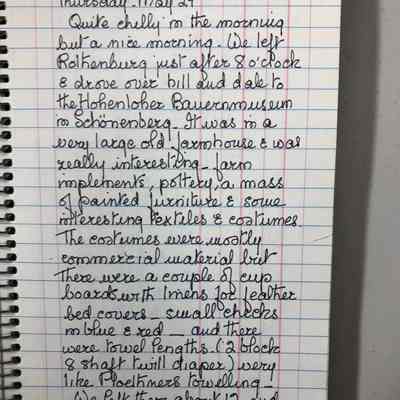 Thursday. May 29
Quite chilly in the morning
but a nice morning. We left
Rothenburg just after 8 o'clock
& drove over hill and dale to
the Hohenloher Bauernmuseum
in Schönenberg. It was in a
very large old farmhouse & was
really interesting - farm
implements, pottery, a mass
of painted furniture & some
interesting textiles & costumes.
The costumes were mostly
commercial material but
there were a couple of cup
boards with linens for feather
bed covers - small checks
in blue & red — and there
were towel lengths. (2 block
8 shaft twill diaper) very
like Ploethners towelling -
We left there about 12 and